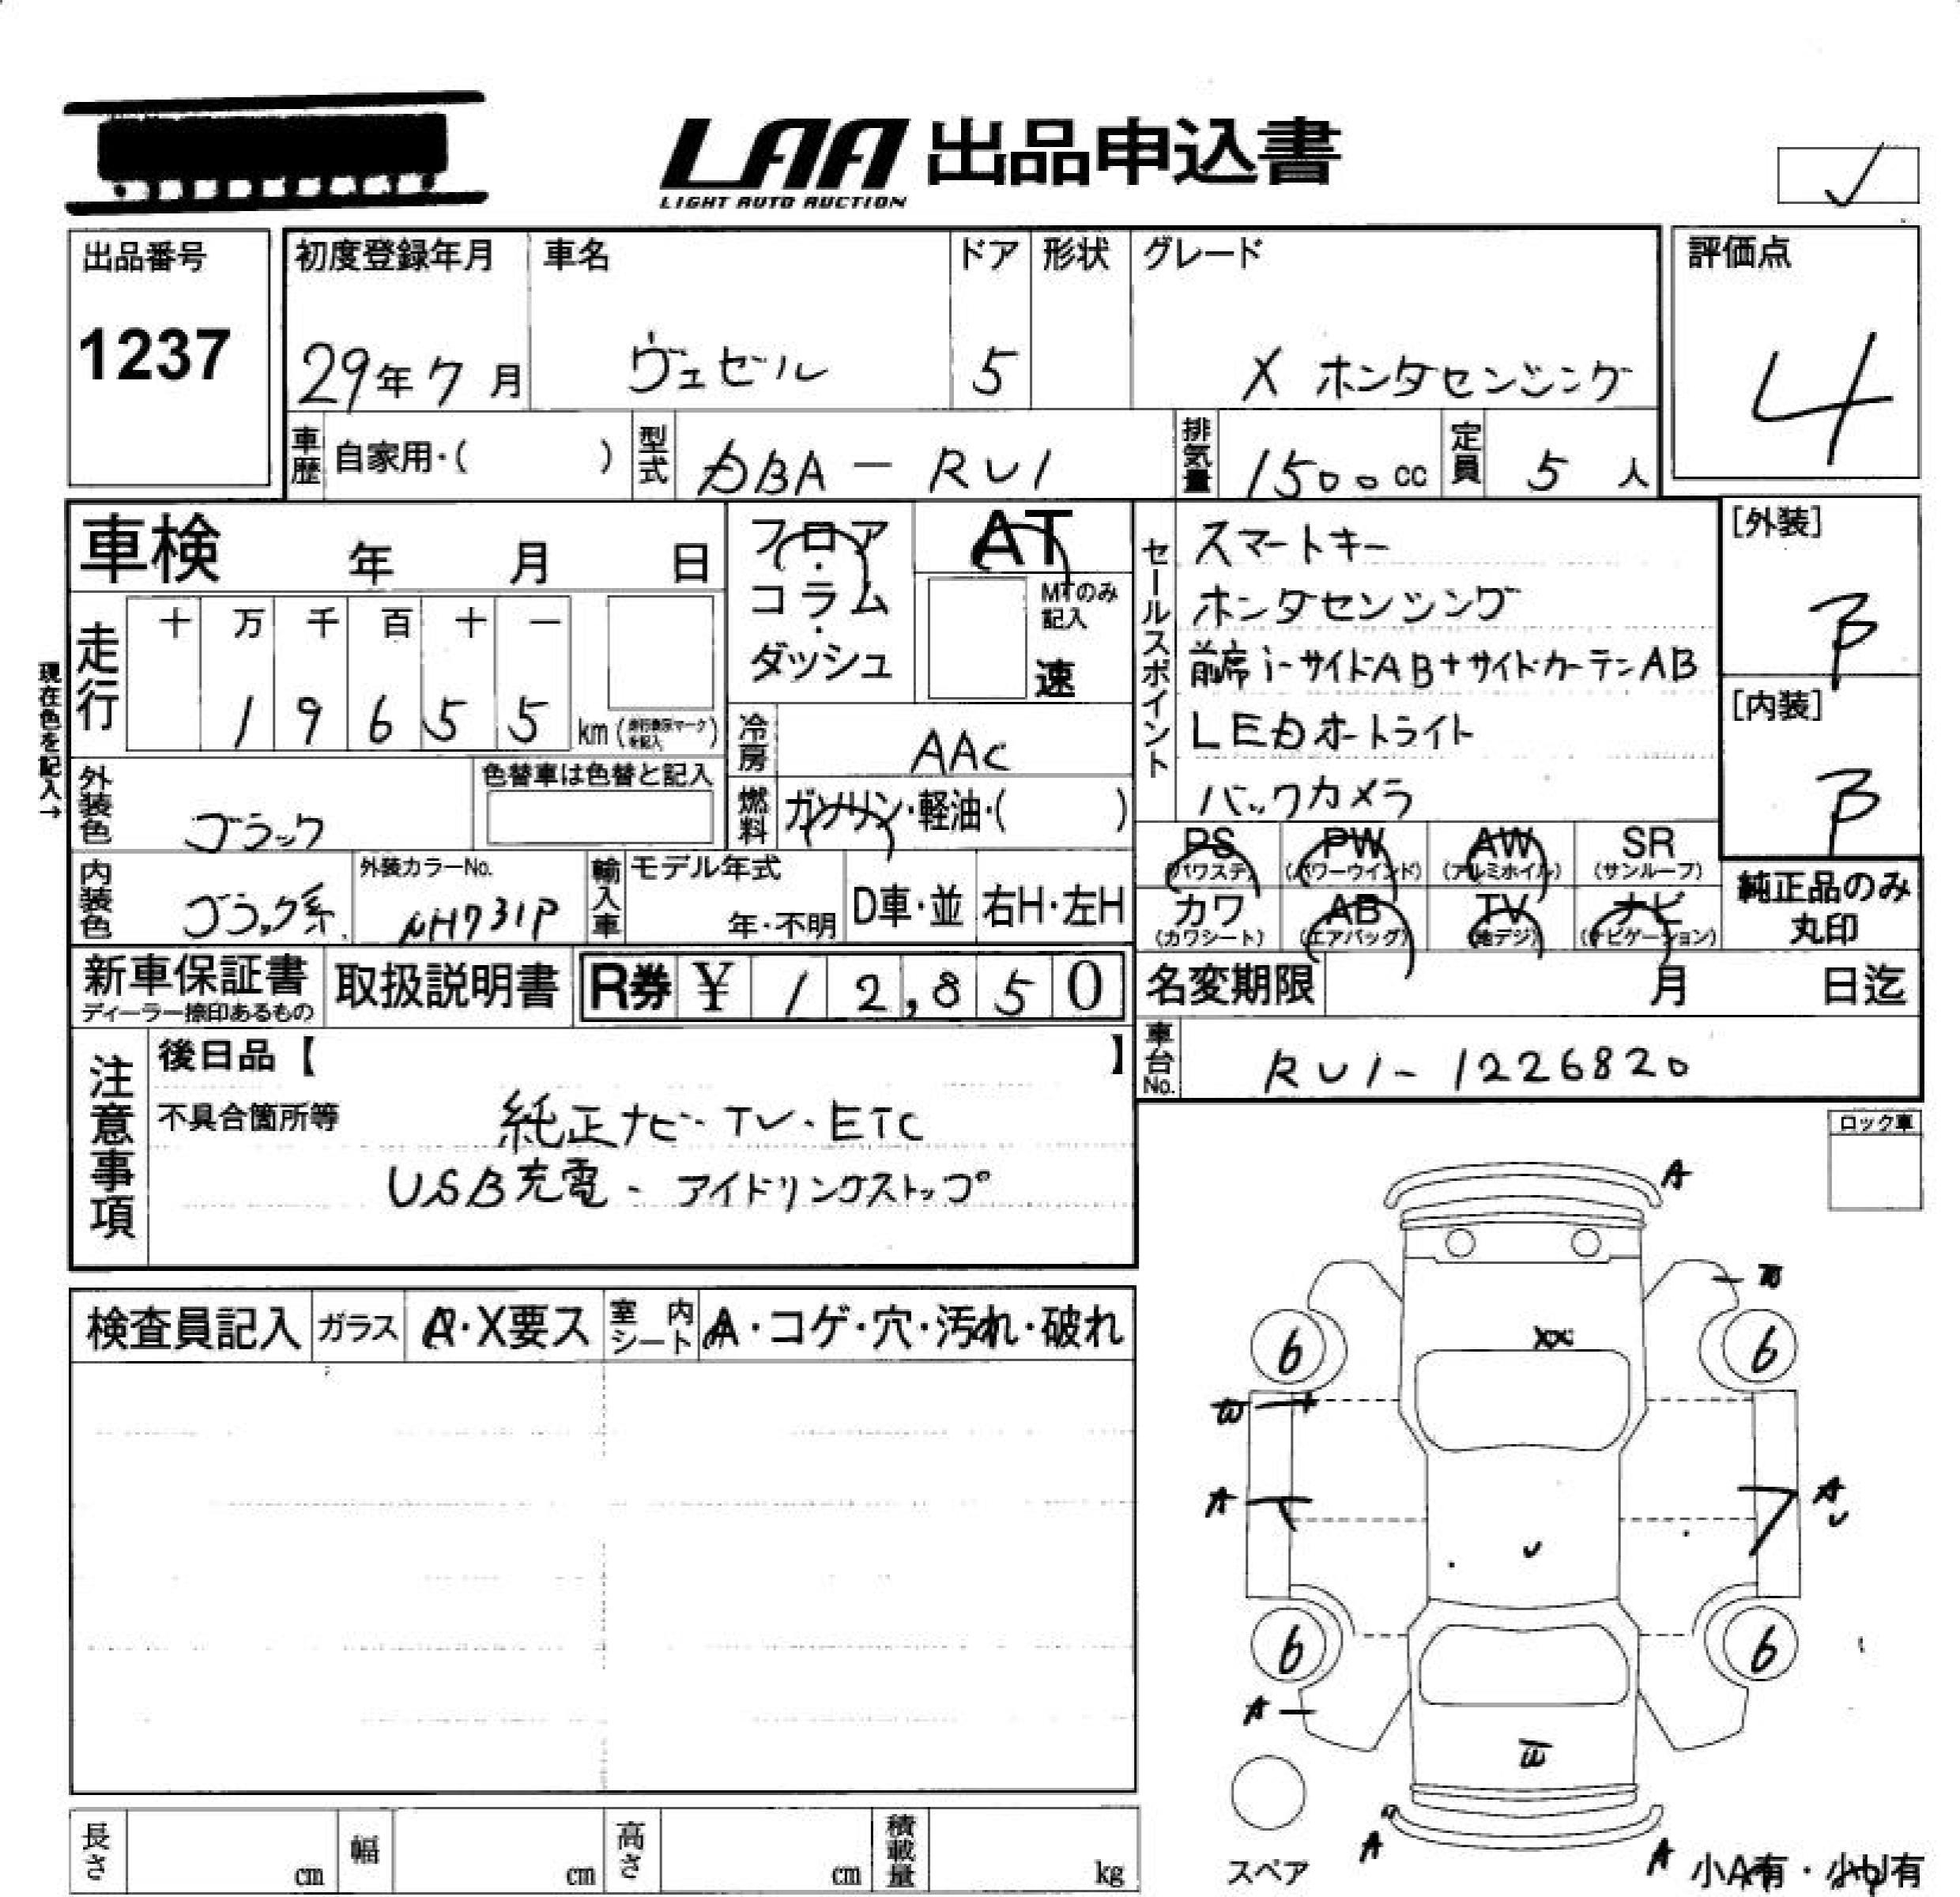 LAA 出品申込書
LIGHT AUTO AUCTION
出品番号
1237
初度登録年月
29年7月
車名
ヴェゼル
ドア
5
形状
グレード
X ホンダセンシング
評価点
4
車歴 自家用・( )
型式 DBA-RU1
排気量 1500cc
定員 5人
車検 年 月 日
フロア・コラム・ダッシュ
AT
MTのみ記入
速
現在色を記入→
走行 十 万 千 百 十 一
19655 km (走行表示マークを記入)
冷房 AAC
外装色 ブラック
色替車は色替と記入
燃料 ガソリン・軽油・( )
内装色 ブラック系
外装カラーNo.
NH731P
輸入車
モデル年式
年・不明
D車・並
右H・左H
セールスポイント
スマートキー
ホンダセンシング
前席i-サイドAB+サイドカーテンAB
LEDオートライト
バックカメラ
[外装]
B
[内装]
B
PS (パワステ)
PW (パワーウインド)
AW (アルミホイル)
SR (サンルーフ)
カワ (カワシート)
AB (エアバッグ)
TV (地デジ)
ナビ (ナビゲーション)
純正品のみ丸印
新車保証書
ディーラー捺印あるもの
取扱説明書
R券 ¥ 12,850
名変期限 月 日迄
車台No. RU1-1226820
注意事項
後日品【 】
不具合箇所等
純正ナビ・TV・ETC
USB充電・アイドリングストップ
ロック車
検査員記入
ガラス A・X要ス
室内シート A・コゲ・穴・汚れ・破れ
A
W
XX
6
6
W
A
A
U
U
6
6
A
W
A
A
スペア
小A有・小U有
長さ cm
幅 cm
高さ cm
積載量 kg